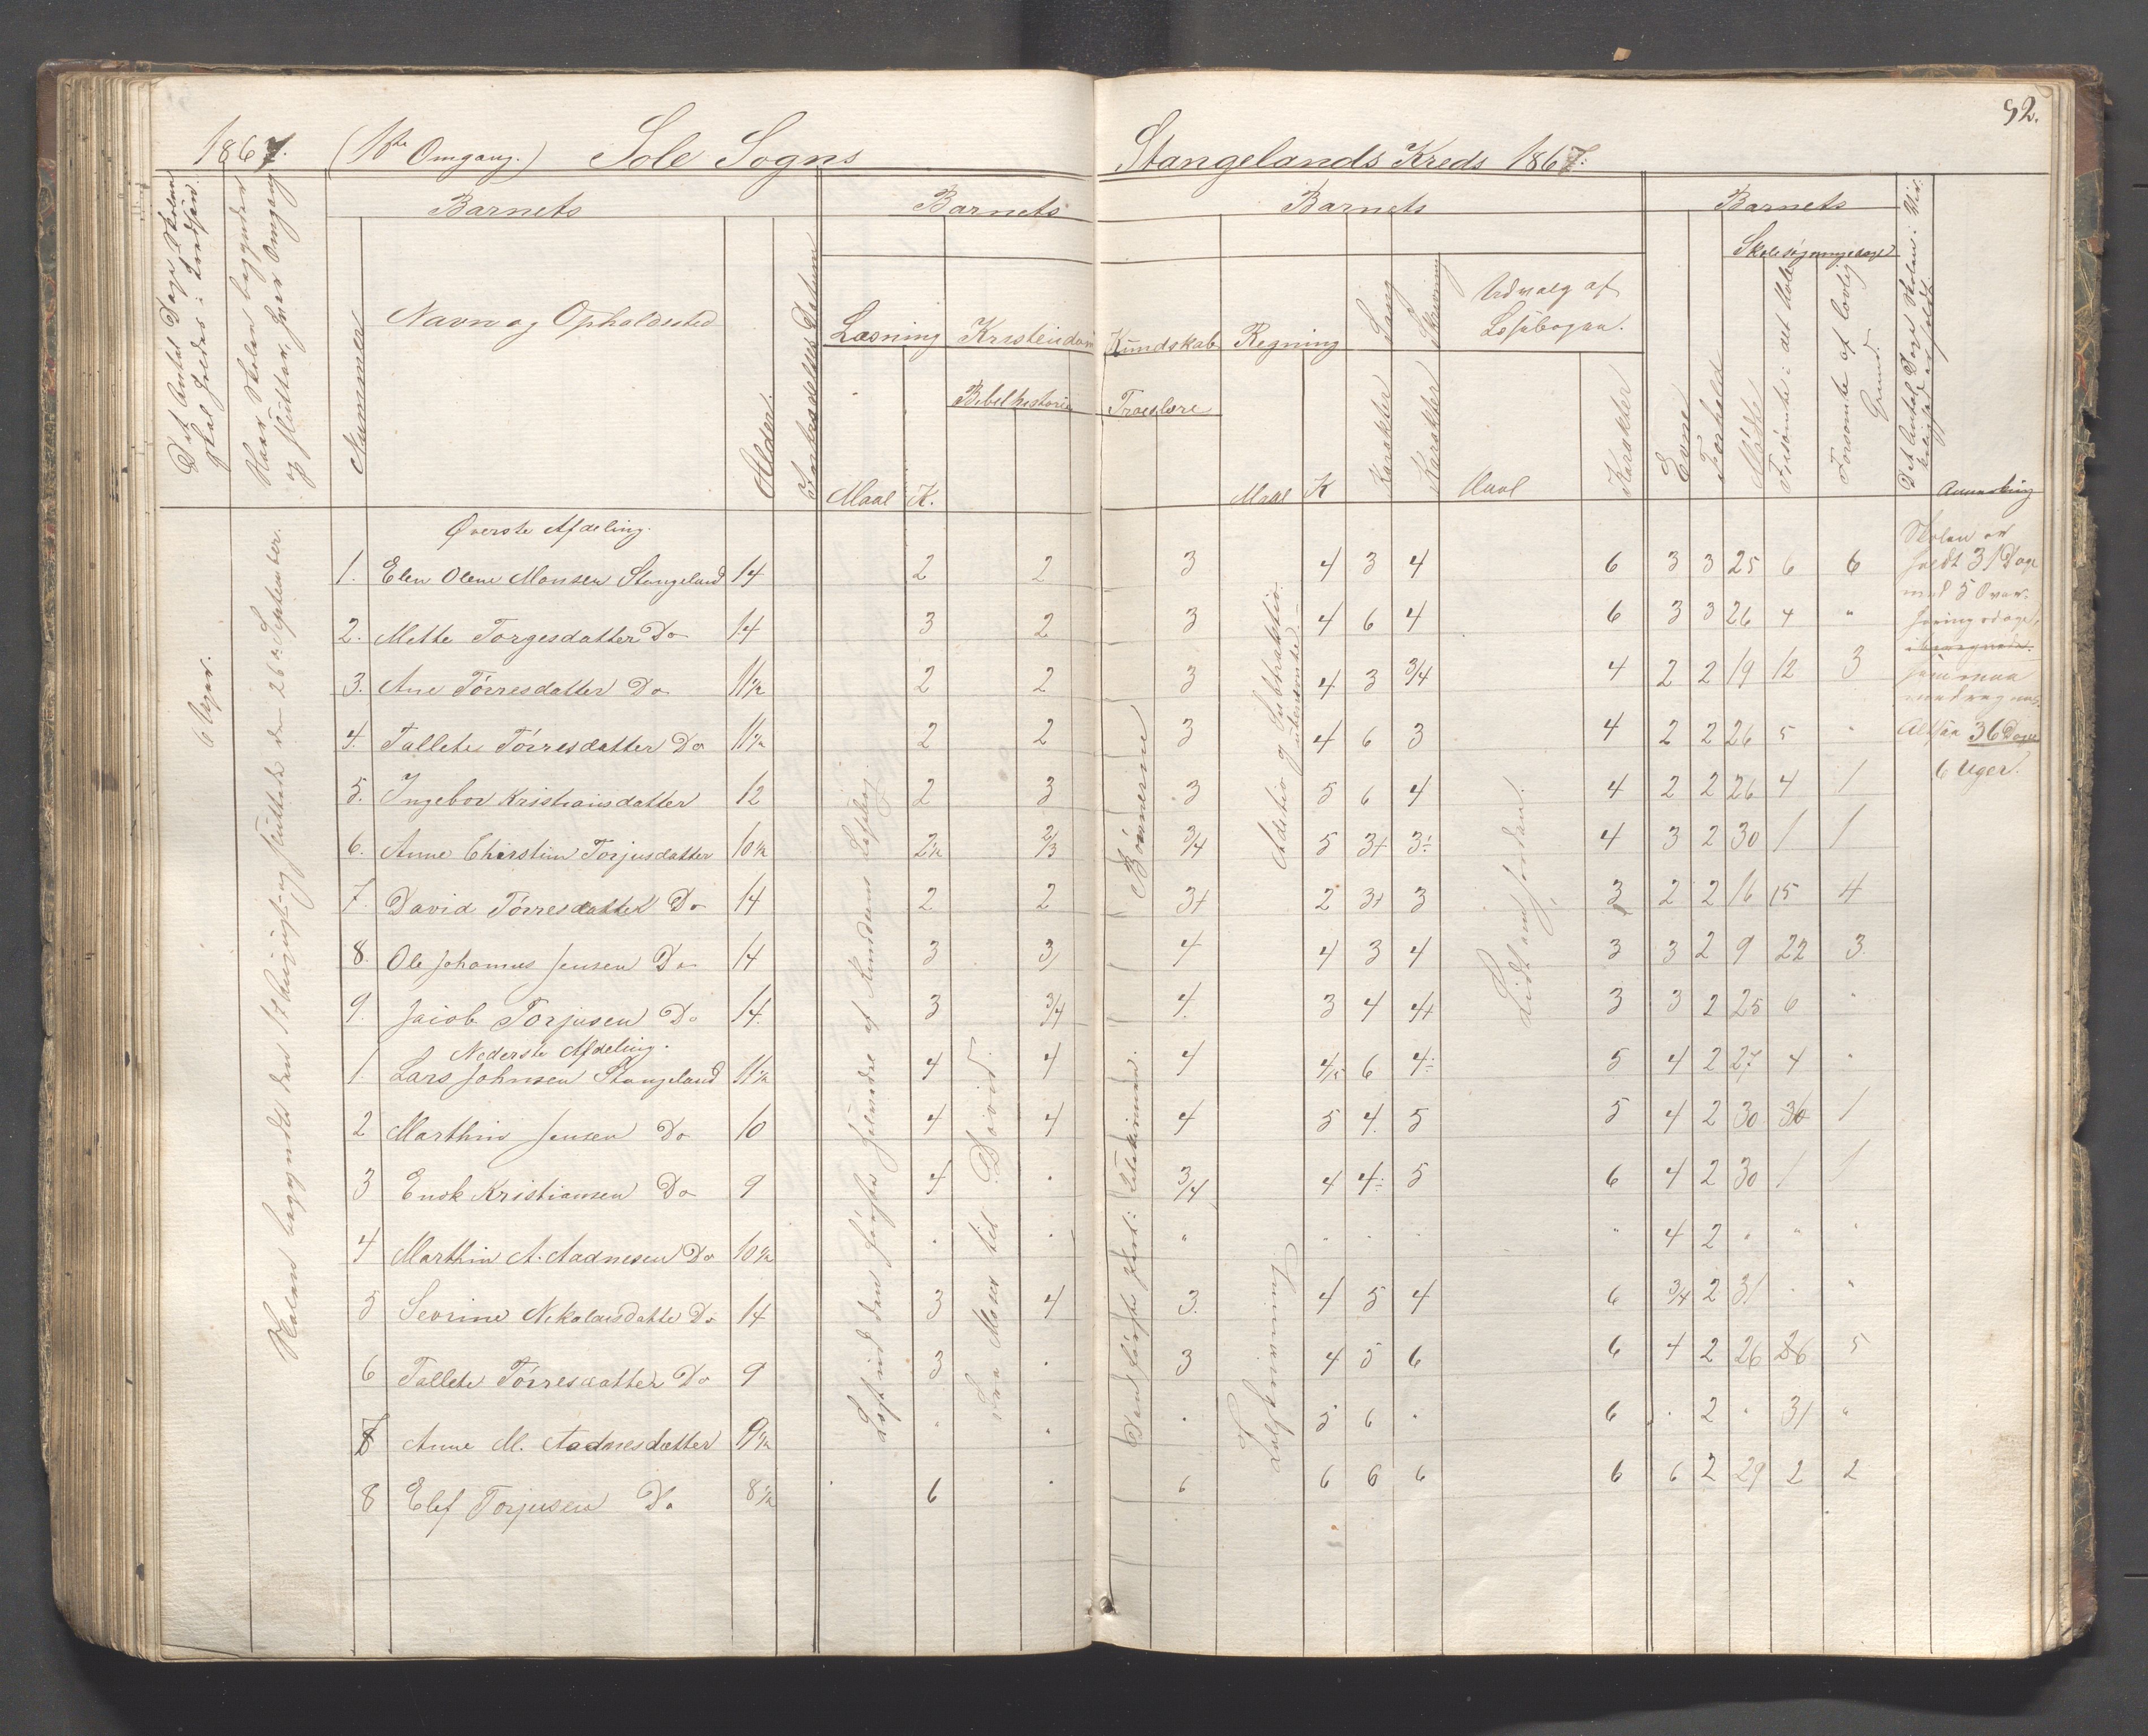 92.
1867. (1ste Omgang.) Sole Sogns Stangelands Kreds 1867:
Det Antal Dage Skolen skal holdes i Kredsen.
Naar Skolen begynder og slutter hver Omgang
Nummer
Barnets
Navn og Opholdssted
Alder.
Indtrædelses Datum
Barnets
Læsning
Maal K.
Kristendoms
Bibelhistorie
Barnets
Kundskab
Troeslære
Regning
Maal K
Sang
Karakter
Skrivning
Karakter
Udvalg af
Læsebogen.
Maal
Karakter
Barnets
Evne
Forhold
Skolesøgningsdage
Mødte
Forsømte i det Hele
Forsømte af lovlig Grund.
Det Antal Dage Skolen i Virkelighed er holdt.
Anmerkning
6 Uger.
Skolen begyndte den 17 August og sluttede den 26de September.
Øverste Afdeling.
1. Elen Olene Monsen Stangeland 14 2 2 3 4 3 4 6 3 3 25 6 6
2. Mette Torgesdatter Do 14 3 2 3 4 6 4 6 3 3 26 4 "
3. Ane Tørresdatter Do 11½ 2 2 3 4 3 3/4 4 2 2 19 12 3
4. Tallete Tørresdatter Do 11½ 2 2 3 4 6 3 4 2 2 26 5 "
5. Ingebor Kristiansdatter 12 2 3 3 5 6 4 4 2 2 26 4 1
6. Anne Chirstine Torjusdatter 10½ 2½ 2/3 3/4 5 3+ 3÷ 4 3 2 30 1 1
7. David Tørresdatter Do 14 2 2 3+ 2 3+ 3 3 2 2 16 15 4
8. Ole Johannes Jensen Do 14 3 3 4 4 3 4 3 3 2 9 22 3.
9. Jacob Torjusen Do 14. 3 3/4 4. 3 4 4+ 3 3 2 25 6 "
Nederste Afdeling.
1. Lars Johnsen Stangeland 11½ 4 4 4 4/5 6 4÷ 5 4 2 27 4 "
2 Marthin Jensen Do 10 4 4 4 5 4. 5 5 4 2 30 30 1
3 Enok Kristiansen Do 9 4 . 3/4 4 4÷ 5 6 4 2 30 1 1
4 Marthin A. Aadnesen Do 10½ . . " . . . " 4 2 " " "
5 Sevrine Nikolaisdatte Do 14 3 4 3. 4 5 4 6 3/4 2 31 . "
6 Tallete Tørresdatter Do 9 3 . 3 4 5 6 6 4 2 26 26 5
7 Anne M. Aadnesdatter 9½ . . . 5 6 . 6 . 2 . 31 "
8 Elef Torjusen Do 8½ 6 . 6 6 6 6 6 6 2 29 2 2
Læst ud den første halvdel af Læsebog.
Fra Moses til David.
Børnene
Den første part i
Additio og Subtraktio
Talskrivning
Lidt om Jorden.
Skolen er
holdt 31 Dage
med 5 Over-
høringsdage,
som maa
medregnes.
Altsaa 36 Dage
6 Uger.